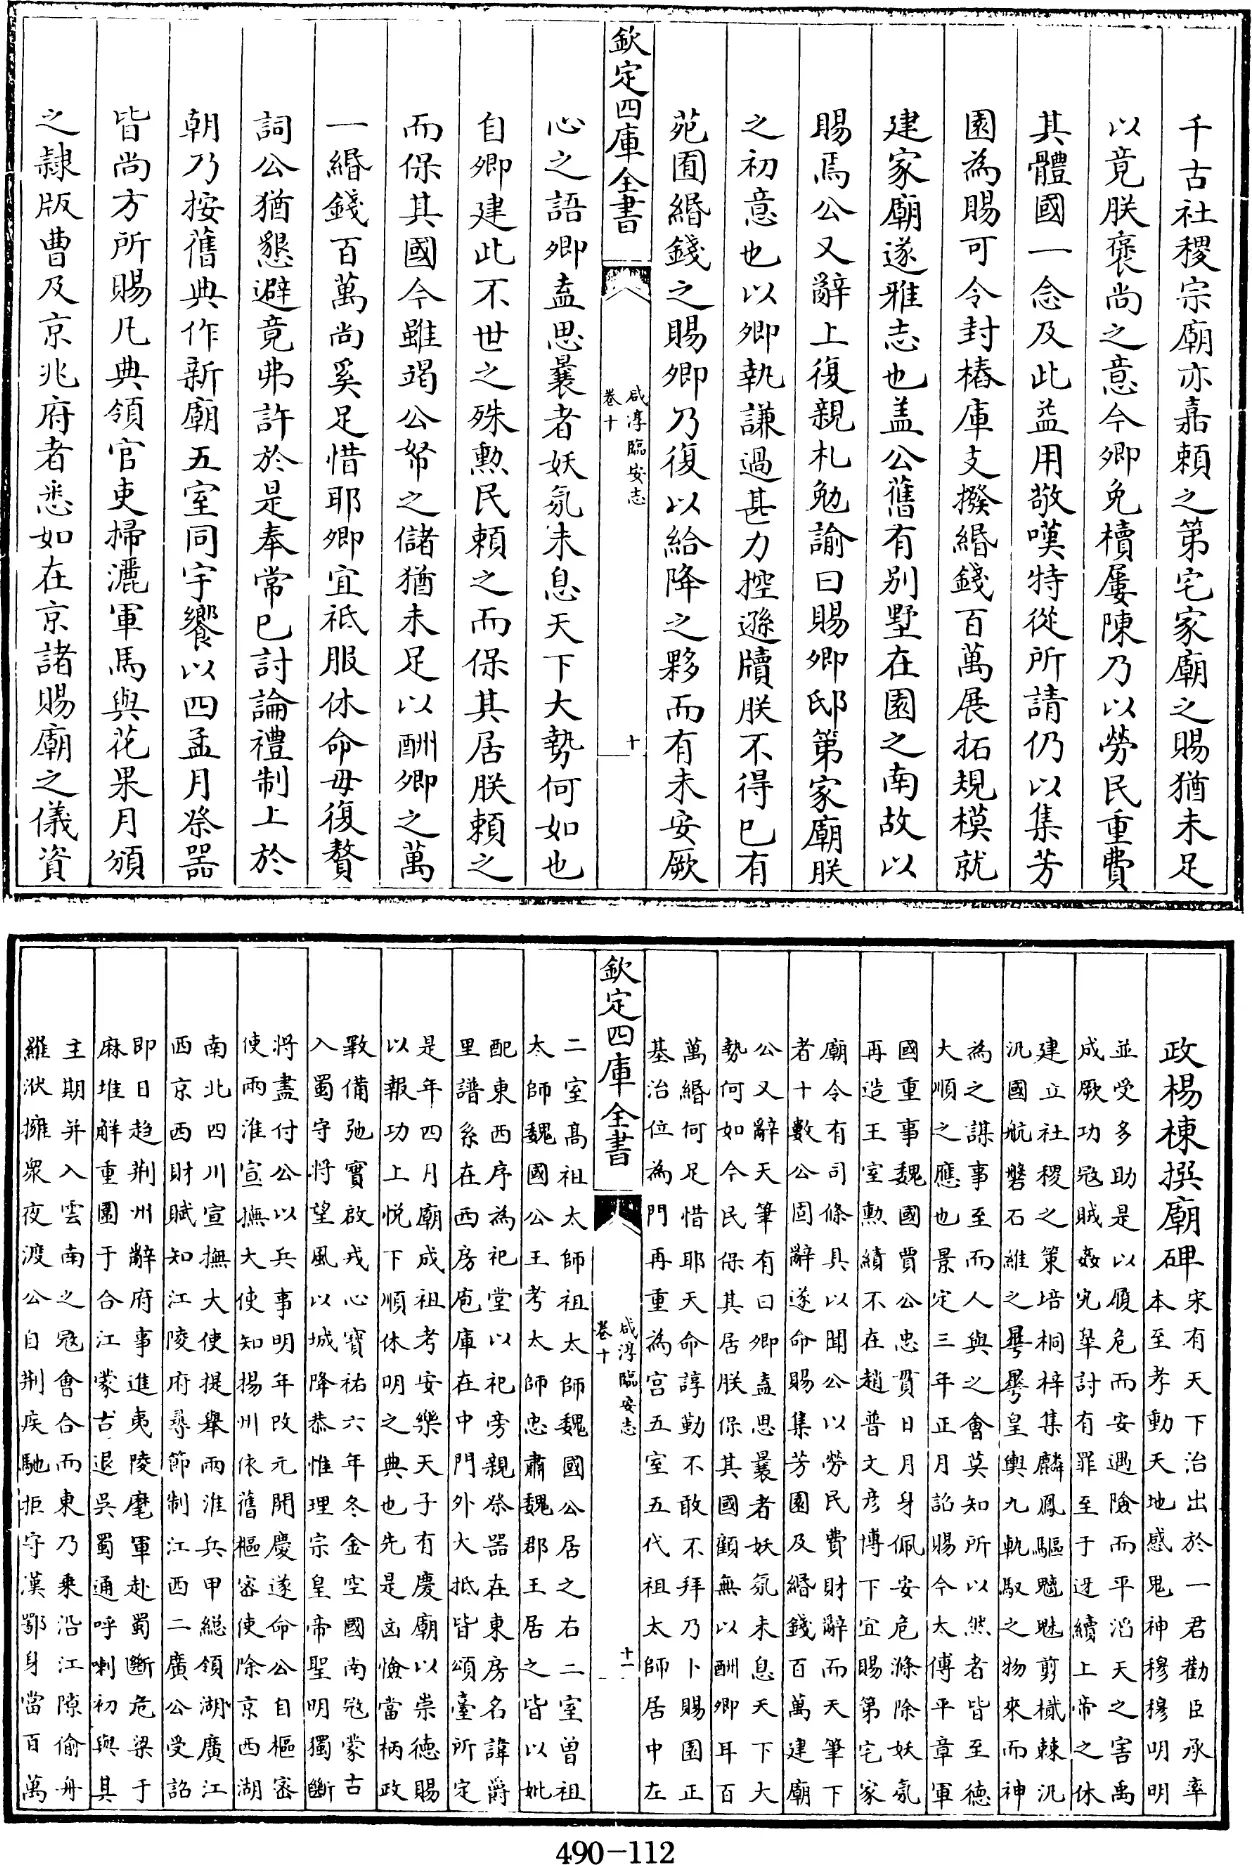 千古社稷宗廟亦嘉頼之第宅家廟之賜猶未足
以竟朕褒尚之意今卿免櫝屢陳乃以勞民重費
其體國一念及此益用敬嘆特從所請仍以集芳
園為賜可令封樁庫支撥緡錢百萬展拓規模就
建家廟遂雅志也盖公舊有别墅在園之南故以
賜焉公又辭上復親札勉諭曰賜卿邸第家廟朕
之初意也以卿執謙過甚力控遜牘朕不得已有
苑囿緡錢之賜卿乃復以給降之夥而有未安厥
欽定四庫全書
咸淳臨安志
卷十
十
心之語卿盍思曩者妖氛未息天下大勢何如也
自卿建此不世之殊勲民頼之而保其居朕頼之
而保其國今雖竭公帑之儲猶未足以酬卿之萬
一緡錢百萬尚奚足惜耶卿宜祗服休命毋復贅
詞公猶懇避竟弗許於是奉常已討論禮制上於
朝乃按舊典作新廟五室同宇饗以四孟月祭器
皆尚方所賜凡典領官吏掃灑軍馬與花果月頒
之隷版曹及京兆府者悉如在京諸賜廟之儀資
政楊棟撰廟碑
宋有天下治出於一君勸臣承率
本至孝動天地感鬼神穆穆明明
並受多助是以履危而安遇險而平滔天之害禹
成厥功冦賊姦宄臯討有罪至于迓續上帝之休
建立社稷之策培桐梓集麟鳳驅魑魅剪樲棘汎
汎國航磐石維之皇輿九軌馭之物來而神
為之謀事至而人與之會莫知所以然者皆至德
大順之應也景定三年正月詔賜今太傅平章軍
國重事魏國賈公忠貫日月身佩安危滌除妖氛
再造王室勲績不在趙普文彦博下宜賜第宅家
廟令有司條具以聞公以勞民費財辭而天筆下
者十數公固辭遂命賜集芳園及緡錢百萬建廟
公又辭天筆有曰卿盍思曩者妖氛未息天下大
勢何如今民保其居朕保其國顧無以酬卿耳百
萬緡何足惜耶天命諄勤不敢不拜乃卜賜園正
基治位為門再重為宫五室五代祖太師居中左
欽定四庫全書
咸淳臨安志
卷十
十一
二室髙祖太師祖太師魏國公居之右二室曾祖
太師魏國公王考太師忠肅魏郡王居之皆以妣
配東西序為祀堂以祀旁親祭器在東房名諱爵
里譜系在西房庖庫在中門外大抵皆頌臺所定
是年四月廟成祖考安樂天子有慶廟以崇德賜
以報功上悦下順休明之典也先是㐫憸當柄政
斁備弛實啟戎心寶祐六年冬金空國南冦蒙古
入蜀守將望風以城降恭惟理宗皇帝聖明獨斷
將盡付公以兵事明年改元開慶遂命公自樞密
使兩淮宣撫大使知揚州依舊樞密使除京西湖
南北四川宣撫大使提舉兩淮兵甲総領湖廣江
西京西財賦知江陵府尋節制江西二廣公受詔
即日趋荆州辭府事進夷陵麾軍赴蜀斷危梁于
麻堆解重圍于合江蒙古退吳蜀通呼喇初與其
主期并入雲南之冦會合而東乃乗沿江隙偷舟
羅洑擁衆夜渡公自荆疾馳拒守漢鄂身當百萬
490-112